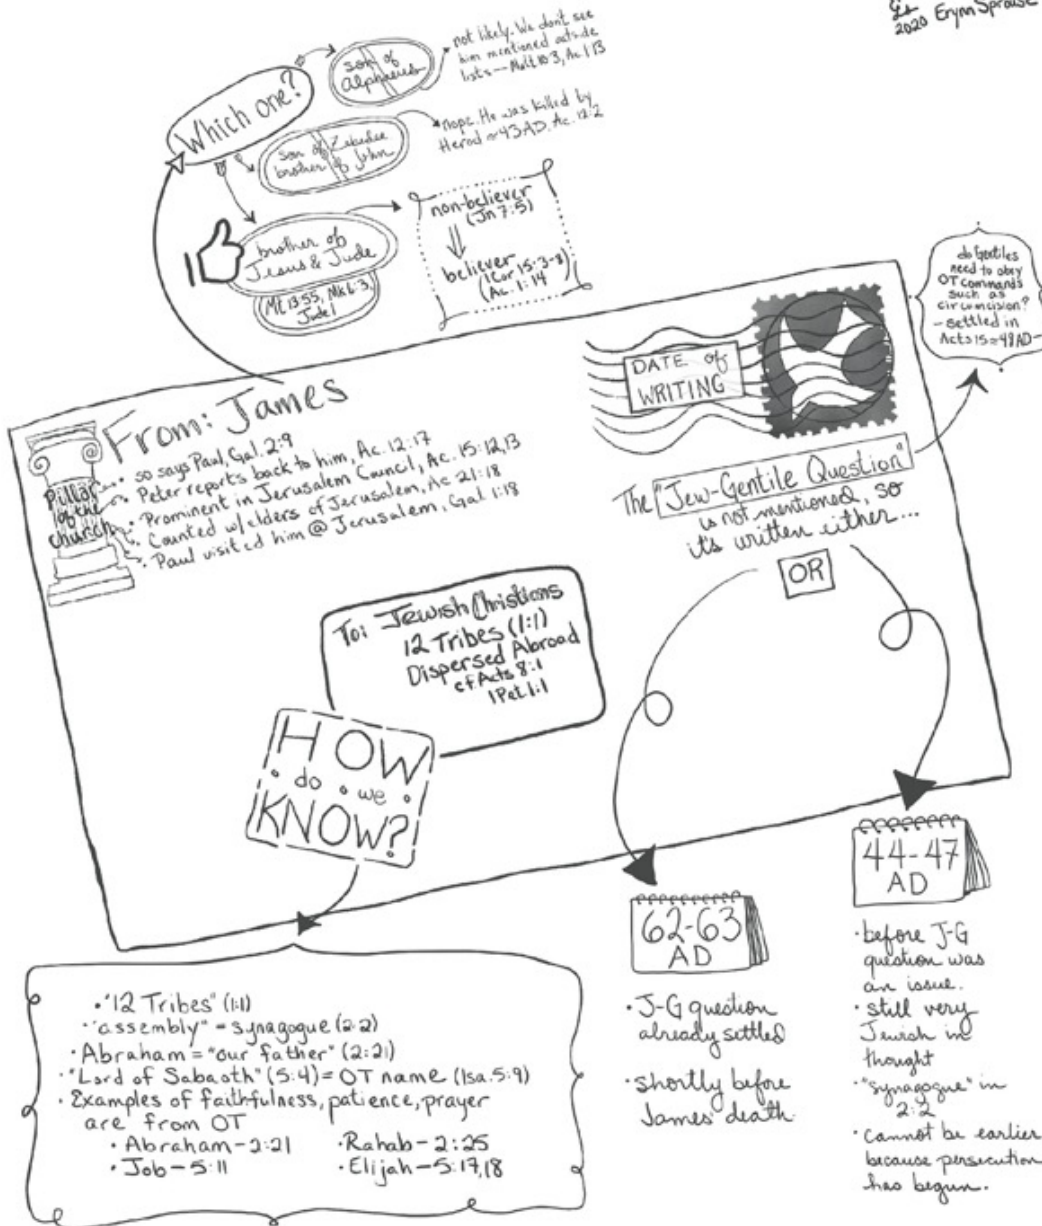 2020 Erynn Sprouse
Which one?
son of
Alphaeus
not likely. We don't see
him mentioned outside
lists -- Matt 10:3, Ac. 1:13
son of Zebedee
brother of John
nope. He was killed by
Herod ≈ 43 AD, Ac. 12:2
brother of
Jesus & Jude
Mt. 13:55, Mk 6:3,
Jude 1
non-believer
(Jn 7:5)
believer
(1 Cor 15:3-8)
(Ac. 1:14
do Gentiles
need to obey
OT commands
such as
circumcision?
- settled in
Acts 15 ≈ 48 AD -
From: James
Pillar
of the
church
• so says Paul, Gal. 2:9
• Peter reports back to him, Ac. 12:17
• Prominent in Jerusalem Council, Ac. 15:12,13
• Counted w/elders of Jerusalem, Ac 21:18
• Paul visited him @ Jerusalem, Gal 1:18
DATE of
WRITING
The "Jew-Gentile Question"
is not mentioned, so
it's written either...
OR
To: Jewish Christians
12 Tribes (1:1)
Dispersed Abroad
cf Acts 8:1
1 Pet 1:1
HOW
• do • we •
KNOW?
• "12 Tribes" (1:1)
• "assembly" = synagogue (2:2)
• Abraham = "our father" (2:21)
• "Lord of Sabaoth" (5:4) = OT name (Isa. 5:9)
• Examples of faithfulness, patience, prayer
are from OT
• Abraham - 2:21
• Rahab - 2:25
• Job - 5:11
• Elijah - 5:17,18
62-63
AD
• J-G question
already settled
• shortly before
James' death
44-47
AD
• before J-G
question was
an issue.
• still very
Jewish in
thought
• "synagogue" in
2:2
• cannot be earlier
because persecution
has begun.